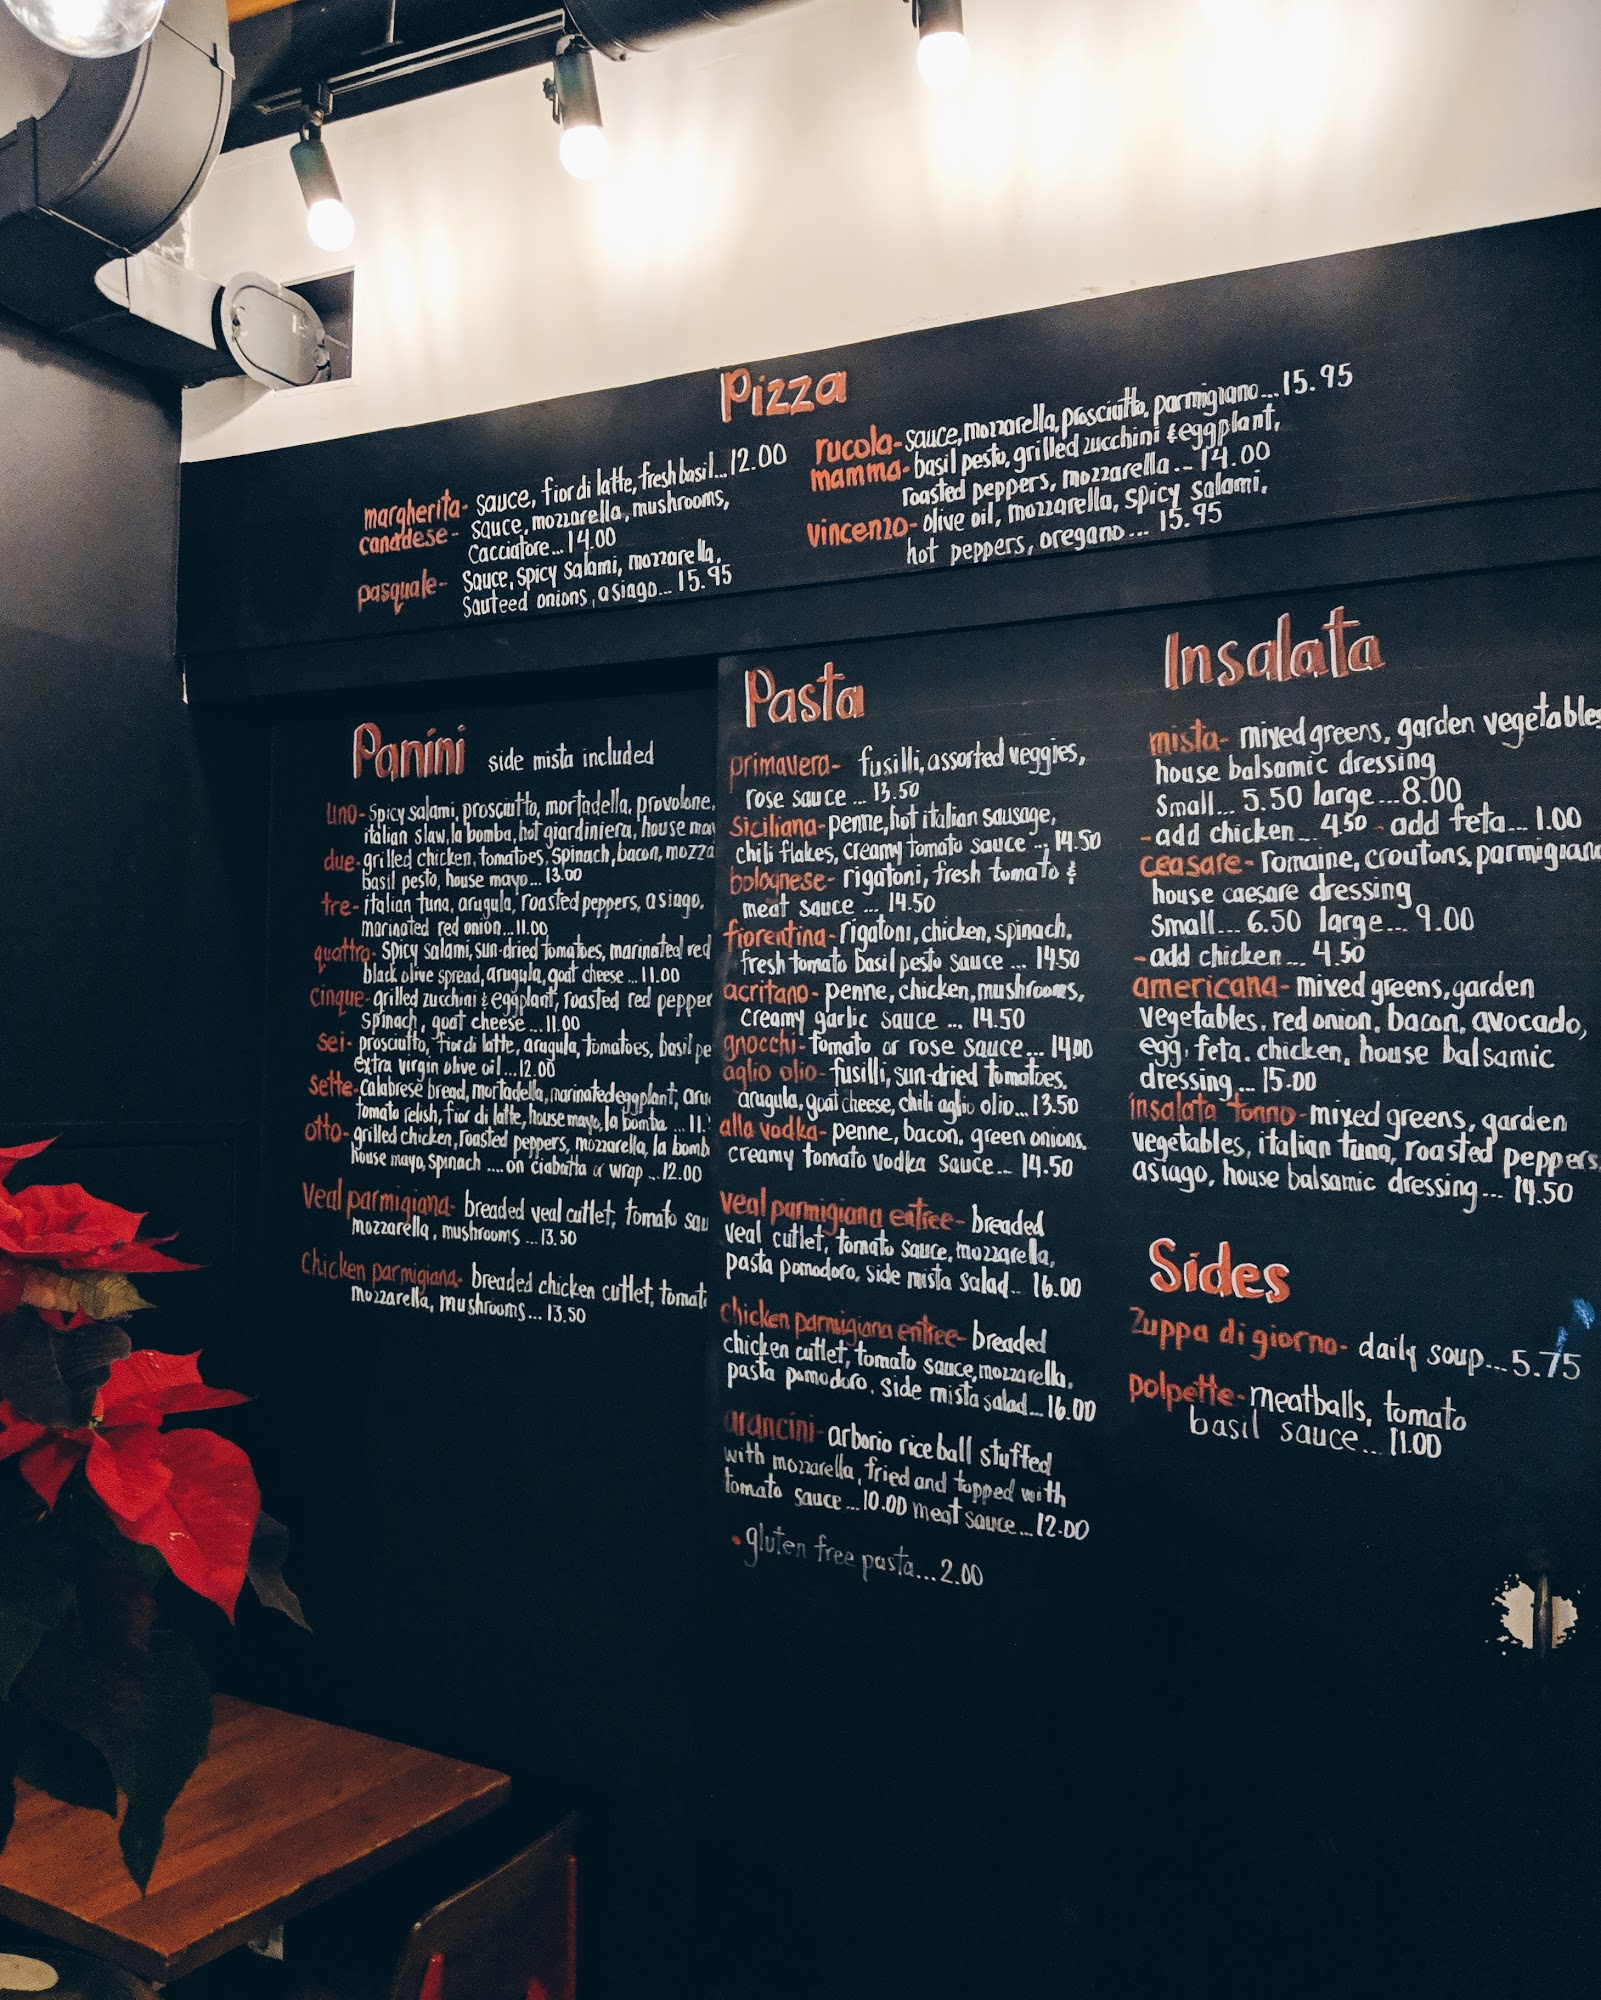 Pizza
margherita- sauce, fior di latte, fresh basil...12.00
canadese- sauce, mozzarella, mushrooms,
Cacciatore...14.00
pasquale- Sauce, spicy salami, mozzarella,
Sauteed onions, asiago...15.95
rucola- sauce, mozzarella, prosciutto, parmigiano...15.95
mamma- basil pesto, grilled zucchini & eggplant,
roasted peppers, mozzarella...14.00
vincenzo- olive oil, mozzarella, spicy salami,
hot peppers, oregano...15.95
Panini side mista included
uno- Spicy salami, prosciutto, mortadella, provolone,
italian slaw, la bomba, hot giardiniera, house may
due- grilled chicken, tomatoes, spinach, bacon, mozza
basil pesto, house mayo...13.00
tre- italian tuna, arugula, roasted peppers, asiago,
marinated red onion...11.00
quattro- spicy salami, sun-dried tomatoes, marinated red
black olive spread, arugula, goat cheese...11.00
cinque- grilled zucchini & eggplant, roasted red pepper
spinach, goat cheese...11.00
sei- prosciutto, fior di latte, arugula, tomatoes, basil pe
extra virgin olive oil...12.00
sette- calabrese bread, mortadella, marinated eggplant, aru
tomato relish, fior di latte, house mayo, la bomba ...11.
otto- grilled chicken, roasted peppers, mozzarella, la bomb
house mayo, spinach ....on ciabatta or wrap...12.00
Veal parmigiana- breaded veal cutlet, tomato sau
mozzarella, mushrooms ...13.50
Chicken parmigiana- breaded chicken cutlet, tomat
mozzarella, mushrooms...13.50
Pasta
primavera- fusilli, assorted veggies,
rose sauce...13.50
Siciliana- penne, hot italian sausage,
chili flakes, creamy tomato sauce...14.50
bolognese- rigatoni, fresh tomato &
meat sauce...14.50
fiorentina- rigatoni, chicken, spinach,
fresh tomato basil pesto sauce...14.50
acritano- penne, chicken, mushrooms,
creamy garlic sauce...14.50
gnocchi- tomato or rose sauce...14.00
aglio olio- fusilli, sun-dried tomatoes,
arugula, goat cheese, chili aglio olio...13.50
alla vodka- penne, bacon, green onions,
creamy tomato vodka sauce...14.50
veal parmigiana entree- breaded
veal cutlet, tomato sauce, mozzarella,
pasta pomodoro, side mista salad..16.00
chicken parmigiana entree- breaded
chicken cutlet, tomato sauce, mozzarella,
pasta pomodoro, side mista salad...16.00
arancini- arborio rice ball stuffed
with mozzarella, fried and topped with
tomato sauce...10.00 meat sauce...12.00
• gluten free pasta...2.00
Insalata
mista- mixed greens, garden vegetables
house balsamic dressing
Small...5.50 large...8.00
- add chicken...4.50 - add feta...1.00
ceasare- romaine, croutons, parmigiano
house caesare dressing
Small...6.50 large...9.00
- add chicken...4.50
americana- mixed greens, garden
vegetables, red onion, bacon, avocado,
egg, feta, chicken, house balsamic
dressing...15.00
insalata tonno- mixed greens, garden
vegetables, italian tuna, roasted peppers,
asiago, house balsamic dressing...14.50
Sides
Zuppa di giorno- daily soup...5.75
polpette- meatballs, tomato
basil sauce...11.00